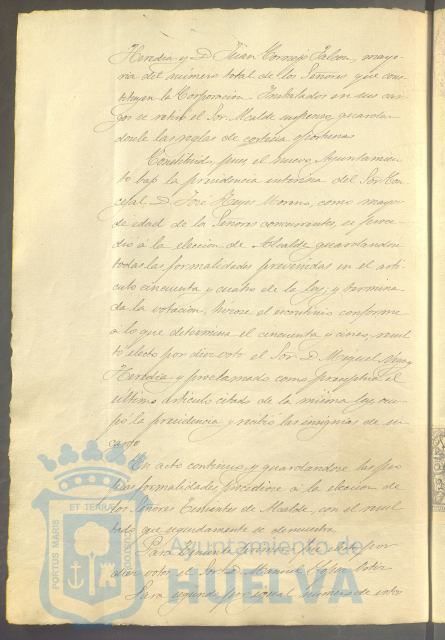 Heredia y D. Juan Cornejo Falcon, mayo-
ria del número total de los Señores que cons-
tituyen la Corporacion. Instalados en sus car-
gos se retiró el Sor. Alcalde suspenso, guardan-
dosele las reglas de cortesia oportunas.
Constituido, pues, el nuevo Ayuntamien-
to bajo la presidencia interina del Sor. Con-
cejal D. José Reyes Moreno, como mayor
de edad de los Señores concurrentes, se proce-
dió á la eleccion de Alcalde guardandose
todas las formalidades prevenidas en el arti-
culo cincuenta y cuatro de la Ley; y termina-
da la votacion, hízose el escrutinio conforme
a lo que determina el cincuenta y cinco, resul-
tó electo por diez votos el Sor. D. Miguel
Heredia y proclamado como preceptua el
ultimo articulo citado de la misma ley, ocu-
pó la presidencia y recibió las insignias de su
cargo.
En acto continuo, y guardandose las pro-
pias formalidades procediose á la eleccion de
los Señores Tenientes de Alcalde, con el resul-
tado que seguidamente se demuestra.
Para Teniente primero fué electo por
diez votos el Sor. D. Manuel
Para segundo por igual número de votos
PORTUS MARIS ET TERRAE CUSTODIA
Ayuntamiento de
HUELVA